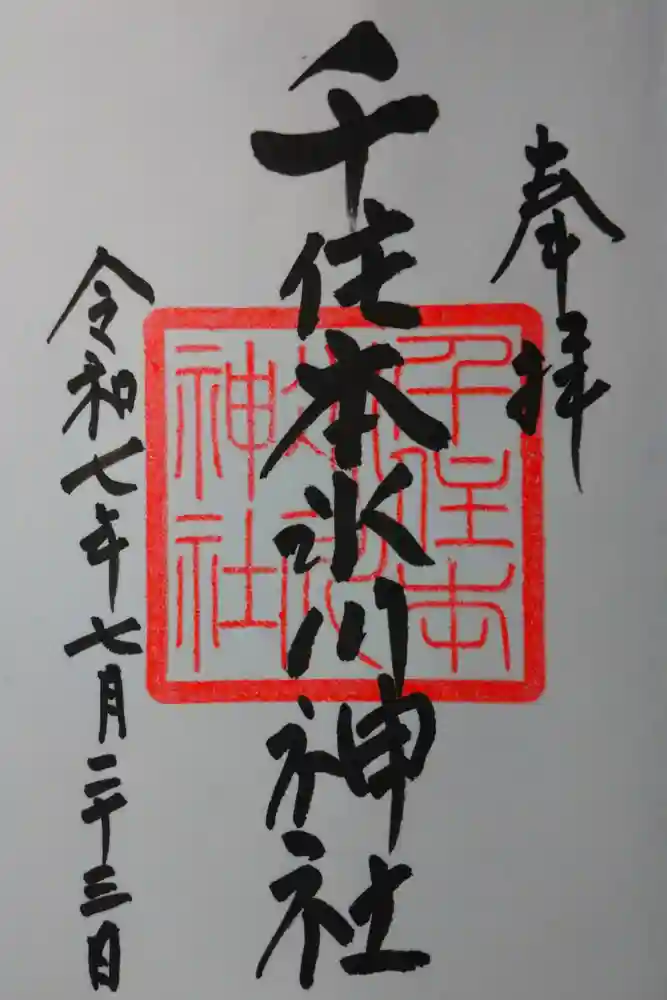 奉拝
千住本氷川神社
千住本
神社
令和七年七月二十三日